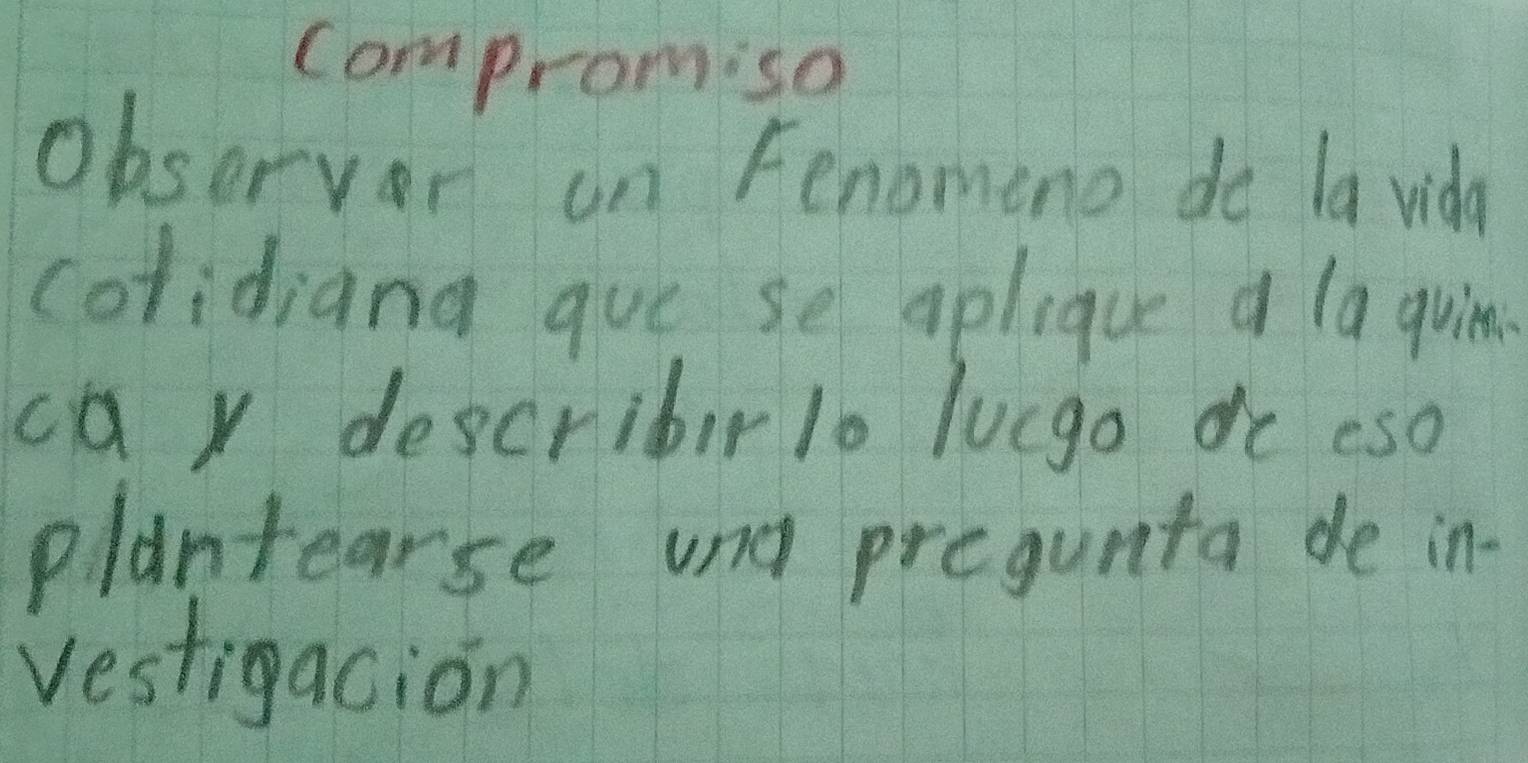 Compromiso
Observar un Fenomeno de la vida
cotidiana que se aplique a la quimi-
ca y describirlo luego de eso
plantearse una pregunta de in-
vestigación